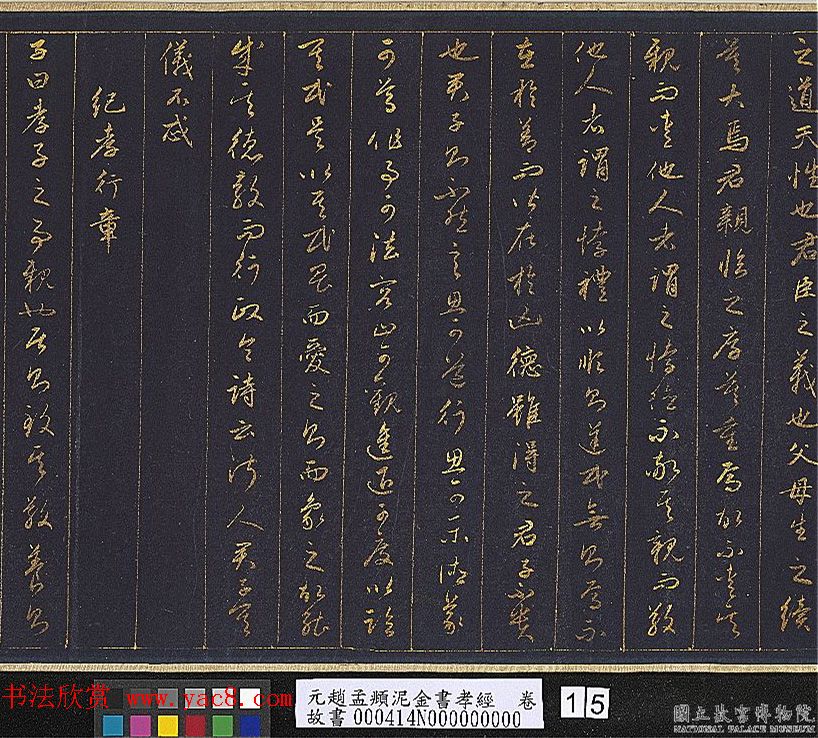 之道天性也君臣之義也父母生之續
莫大焉君親臨之厚莫重焉故不愛其
親而愛他人者謂之悖德不敬其親而敬
他人者謂之悖禮以順則逆民無則焉不
在於善而皆在於凶德雖得之君子不貴
也君子則不然言思可道行思可樂德義
可尊作事可法容止可觀進退可度以臨
其民是以其民畏而愛之則而象之故能
成其德教而行政令詩云淑人君子其
儀不忒
紀孝行章
子曰孝子之事親也居則致其敬養則
书法欣赏 www.yac8.com
元趙孟頫泥金書孝經 卷
故書000414N000000000
15
國立故宮博物院
NATIONAL PALACE MUSEUM